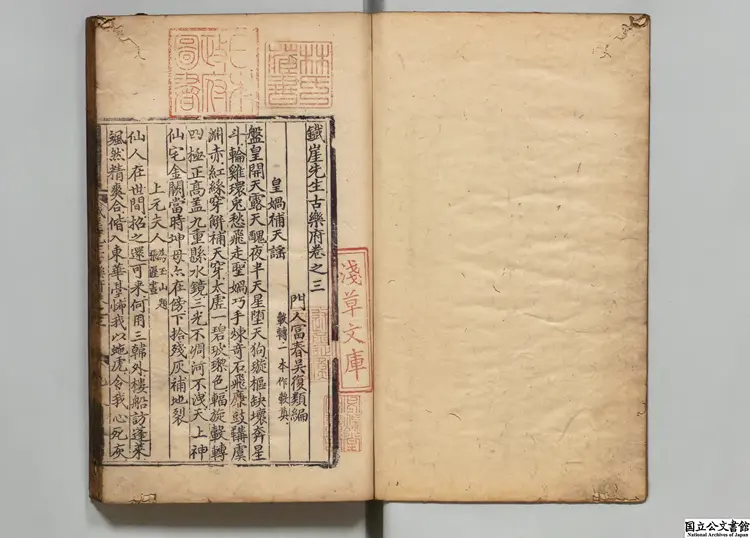 鐵崖先生古樂府卷之三
門人富春吳復類編
皇媧補天謠
轂轉二本作轂奧
盤皇開天露天醜夜半天星墮天狗璇樞缺壞奔星
斗輪雞環兔愁飛走聖媧巧手煉奇石飛廉鼓鞴虞
淵赤紅絲穿餅補天穿太虛一碧玻瓈色輻旋轂轉
四極正高蓋九重縣水鏡三光不凋河不洩天上神
仙宅金闕當時坤母亦在傍下拾殘灰補地裂
上元夫人
為玉山題
張渥畫
仙人在世間招之還可來何用三韓外樓船訪蓬萊
颯然精爽合偕入東華臺怖我以虵虎令我心死灰
日本
政府
圖書
林氏
藏書
淺草文庫
国立公文書館
National Archives of Japan